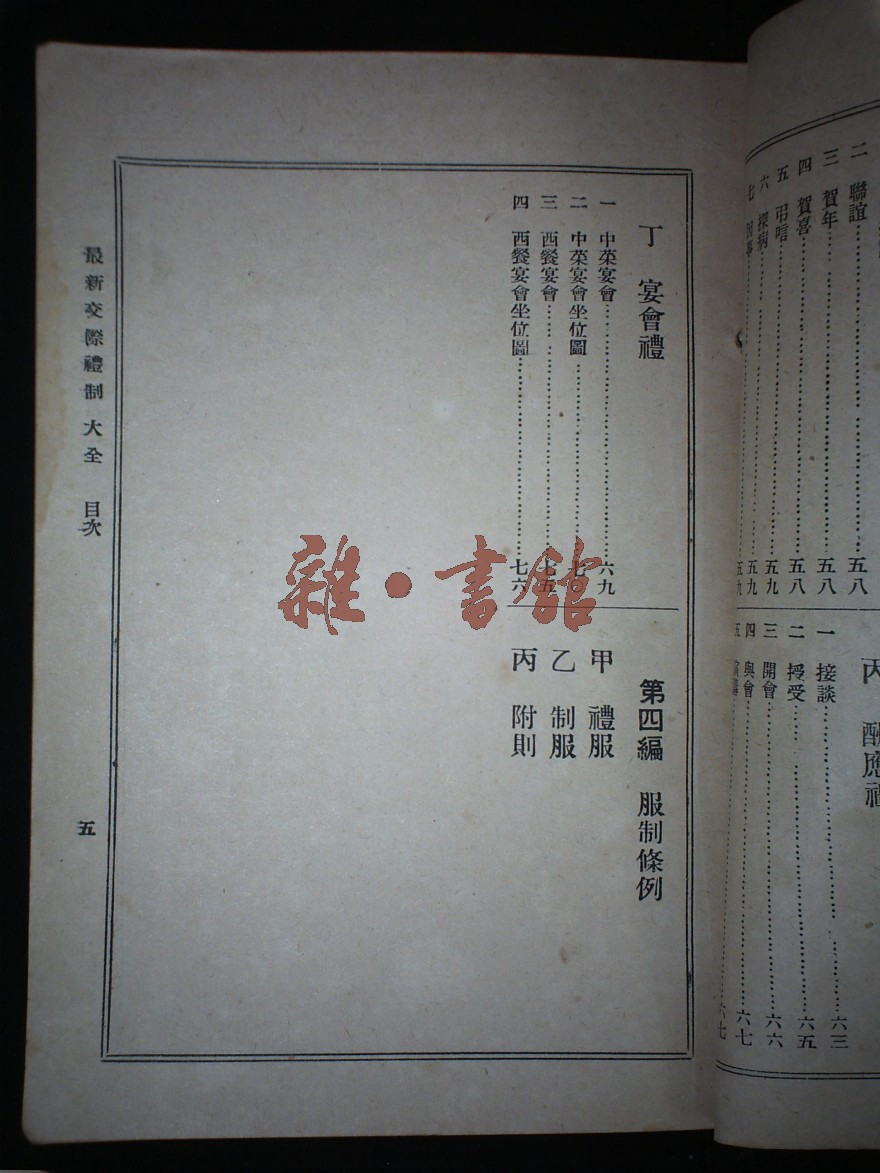 二 聯誼……五八
三 賀年……五八
四 賀喜……五八
五 弔唁……五九
六 探病……五九
七
五九
丙 酬應禮
一 接談……六三
二 授受……六五
三 開會……六六
四 與會……六七
五
六七
丁 宴會禮
一 中菜宴會……六九
二 中菜宴會坐位圖……七〇
三 西餐宴會……七五
四 西餐宴會坐位圖……七六
第四編 服制條例
甲 禮服
乙 制服
丙 附則
最新交際禮制大全 目次
五
雜·書館